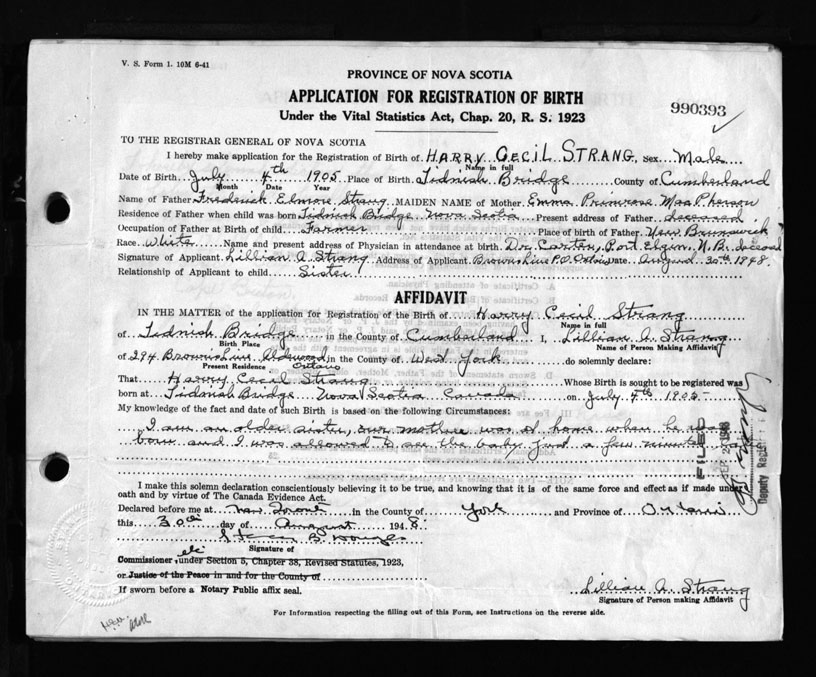 V. S. Form 1. 10M 6-41
PROVINCE OF NOVA SCOTIA
APPLICATION FOR REGISTRATION OF BIRTH
990393
Under the Vital Statistics Act, Chap. 20, R. S. 1923
TO THE REGISTRAR GENERAL OF NOVA SCOTIA
I hereby make application for the Registration of Birth of HARRY CECIL STRANG Sex Male
Name in full
Date of Birth July 4th 1905 Place of Birth Tidnish Bridge County of Cumberland
Month Date Year
Name of Father Frederick Elmore Strang MAIDEN NAME of Mother Emma Primrose MacPherson
Residence of Father when child was born Tidnish Bridge Nova Scotia Present address of Father deceased
Occupation of Father at Birth of child Farmer Place of birth of Father New Brunswick
Race White Name and present address of Physician in attendance at birth Dr. Carter, Port Elgin, N.B. deceased
Signature of Applicant Lillian A Strang Address of Applicant Brownsline P.O. Ontario Date August 30th 1948
Relationship of Applicant to child Sister
AFFIDAVIT
IN THE MATTER of the application for Registration of the Birth of Harry Cecil Strang
Name in full
of Tidnish Bridge in the County of Cumberland I, Lillian A Strang
Birth Place Name of Person Making Affidavit
of 294 Brownsline Alderwood in the County of West York do solemnly declare:
Present Residence Ontario
That Harry Cecil Strang Whose Birth is sought to be registered was
born at Tidnish Bridge Nova Scotia Canada on July 4th 1905
My knowledge of the fact and date of such Birth is based on the following Circumstances:
I am an older sister, our mother was at home when he was
born and I was allowed to see the baby just a few minutes
FILED
1948
Deputy Registrar
I make this solemn declaration conscientiously believing it to be true, and knowing that it is of the same force and effect as if made under
oath and by virtue of The Canada Evidence Act.
Declared before me at New Toronto in the County of York and Province of Ontario
this 30th day of August 1948.
Signature of
Commissioner, etc under Section 5, Chapter 38, Revised Statutes, 1923,
or Justice of the Peace in and for the County of
If sworn before a Notary Public affix seal.
Lillian A Strang
Signature of Person making Affidavit
For Information respecting the filling out of this Form, see Instructions on the reverse side.